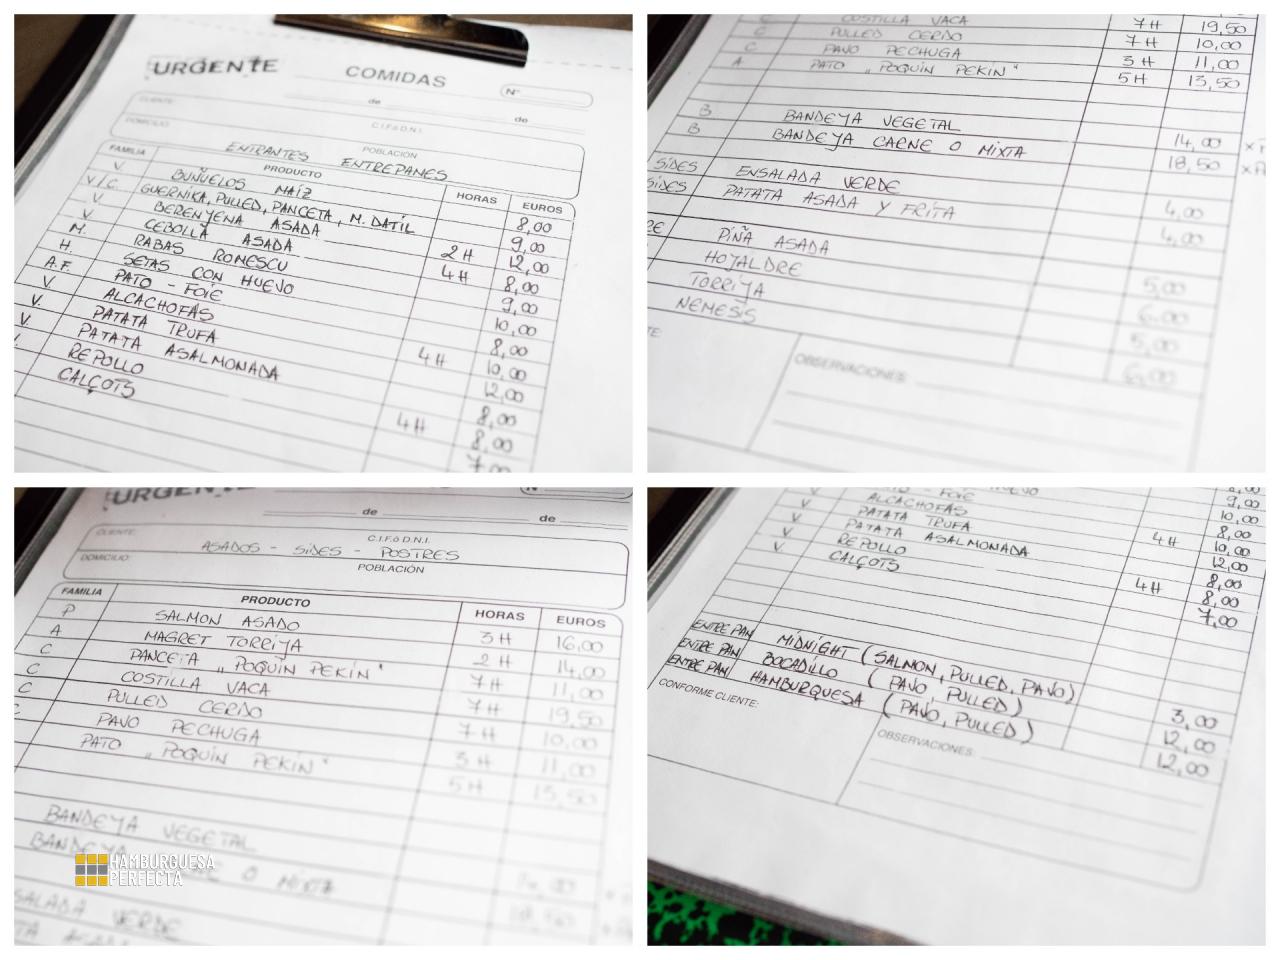 URGENTE COMIDAS Nº
de de
CLIENTE:
C.I.F. ó D.N.I.
DOMICILIO:
POBLACIÓN
ENTRANTES ENTREPANES
FAMILIA PRODUCTO HORAS EUROS
V. BUÑUELOS MAÍZ 8,00
V/C. GUERNIKA, PULLED, PANCETA, M. DATIL 9,00
V BERENYENA ASADA 2H 12,00
V CEBOLLA ASADA 4H 8,00
M. RABAS ROMESCU 9,00
H. SETAS CON HUEVO 10,00
A.F. PATO - FOIE 8,00
V. ALCACHOFAS 4H 10,00
V. PATATA TRUFA 12,00
V. PATATA ASALMONADA 8,00
REPOLLO 4H 8,00
CALÇOTS 7,00
C COSTILLA VACA 7H 19,50
C PULLED CERDO 7H 10,00
C PAVO PECHUGA 3H 11,00
A PATO "POQUIN PEKIN" 5H 13,50
B BANDEYA VEGETAL 14,00
B BANDEYA CARNE O MIXTA 18,50
SIDES ENSALADA VERDE 4,00
SIDES PATATA ASADA Y FRITA 4,00
PIÑA ASADA 5,00
HOYALDRE 6,00
TORRIYA 5,00
NEMESIS 6,00
OBSERVACIONES:
URGENTE
de de
CLIENTE:
C.I.F. ó D.N.I.
ASADOS - SIDES - POSTRES
DOMICILIO:
POBLACIÓN
FAMILIA PRODUCTO HORAS EUROS
P SALMON ASADO 3H 16,00
A MAGRET TORRIYA 2H 14,00
C PANCETA "POQUIN PEKIN" 7H 11,00
C COSTILLA VACA 7H 19,50
C PULLED CERDO 7H 10,00
PAVO PECHUGA 3H 11,00
PATO "POQUIN PEKIN" 5H 13,50
BANDEYA VEGETAL
BANDEYA O MIXTA
VERDE
HAMBURGUESA
PERFECTA
PATO - FOIE 8,00
ALCACHOFAS 4H 10,00
V. PATATA TRUFA 12,00
V. PATATA ASALMONADA 8,00
V. REPOLLO 4H 8,00
V. CALÇOTS 7,00
ENTRE PAN MIDNIGHT (SALMON, PULLED, PAVO) 3,00
ENTRE PAN BOCADILLO (PAVO, PULLED) 12,00
ENTRE PAN HAMBURQUESA (PAVO, PULLED) 12,00
CONFORME CLIENTE:
OBSERVACIONES: